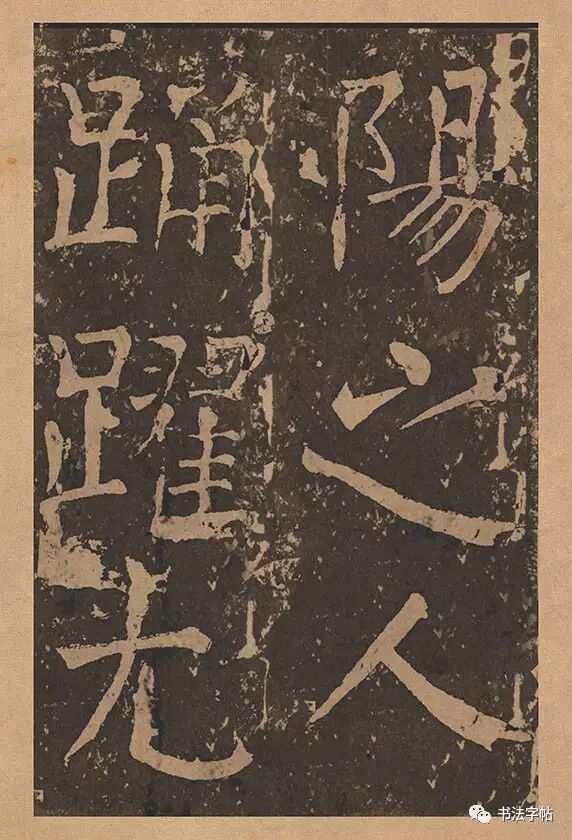 陽之人
踊躍尤
书法字帖